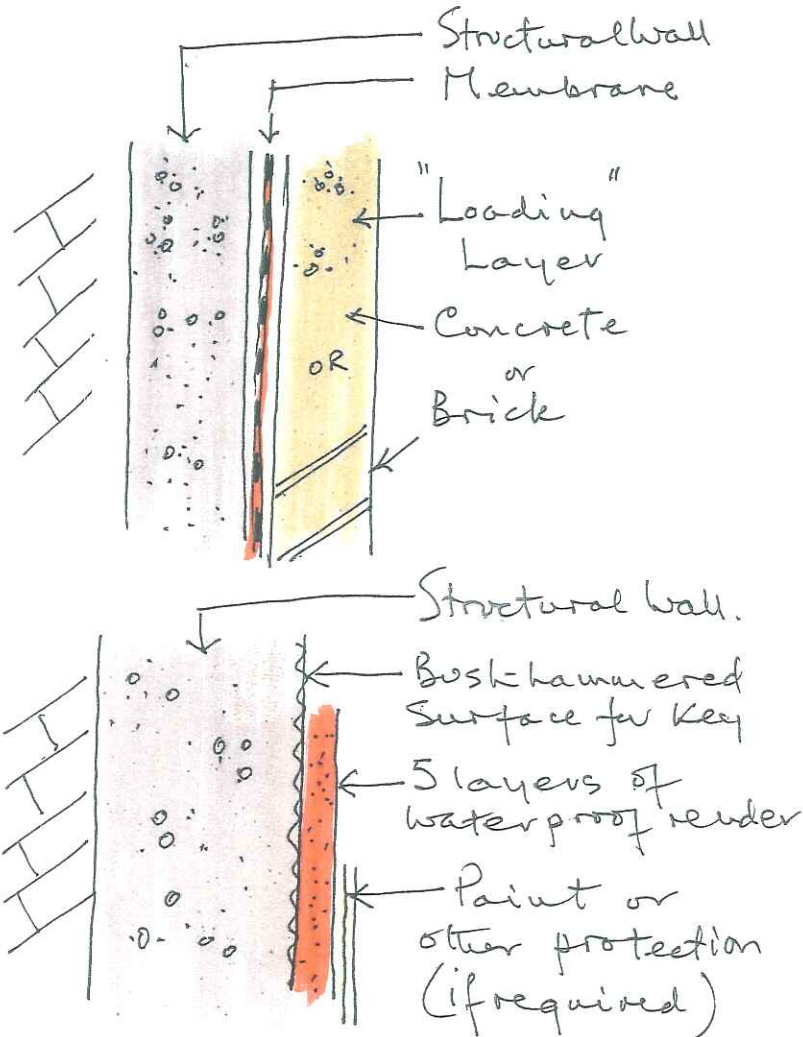 Structural Wall
Membrane
"Loading"
Layer
Concrete
or
Brick
OR
Structural Wall.
Bush-hammered
Surface for Key
5 layers of
waterproof render
Paint or
other protection
(if required)